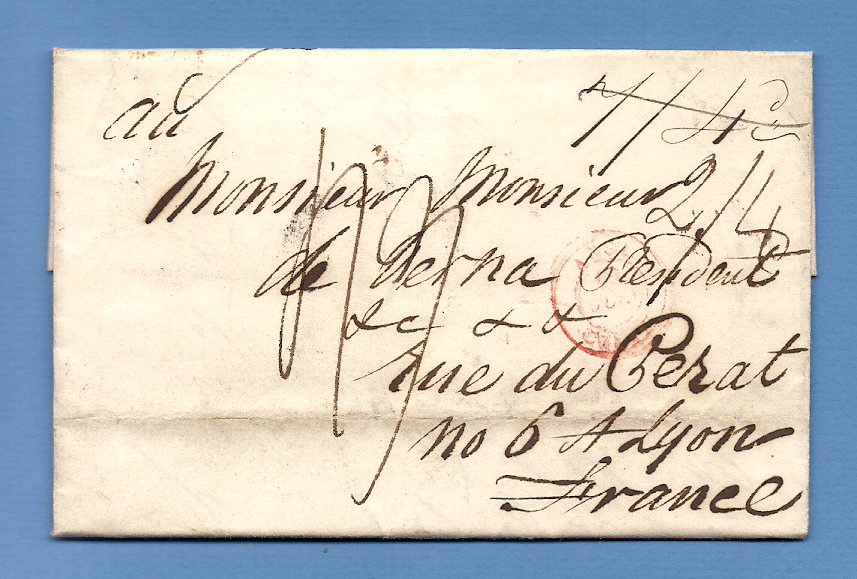 au
Monsieur Monsieur
2/4
de Verna President
&c & &
rue du Perat
no 6 A Lyon
France